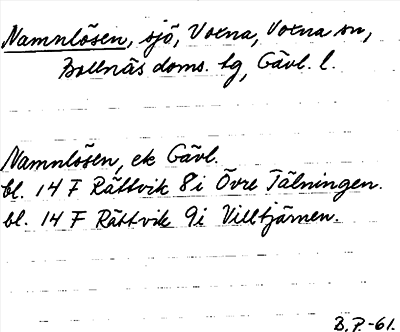 Namnlösen, sjö, Voxna, Voxna sn,
Bollnäs doms. tg, Gävl. l.
Namnlösen, ek Gävl.
bl. 14 F Rättvik 8i Övre Tälningen.
bl. 14 F Rättvik 9i Villtjärnen.
B.P.-61.